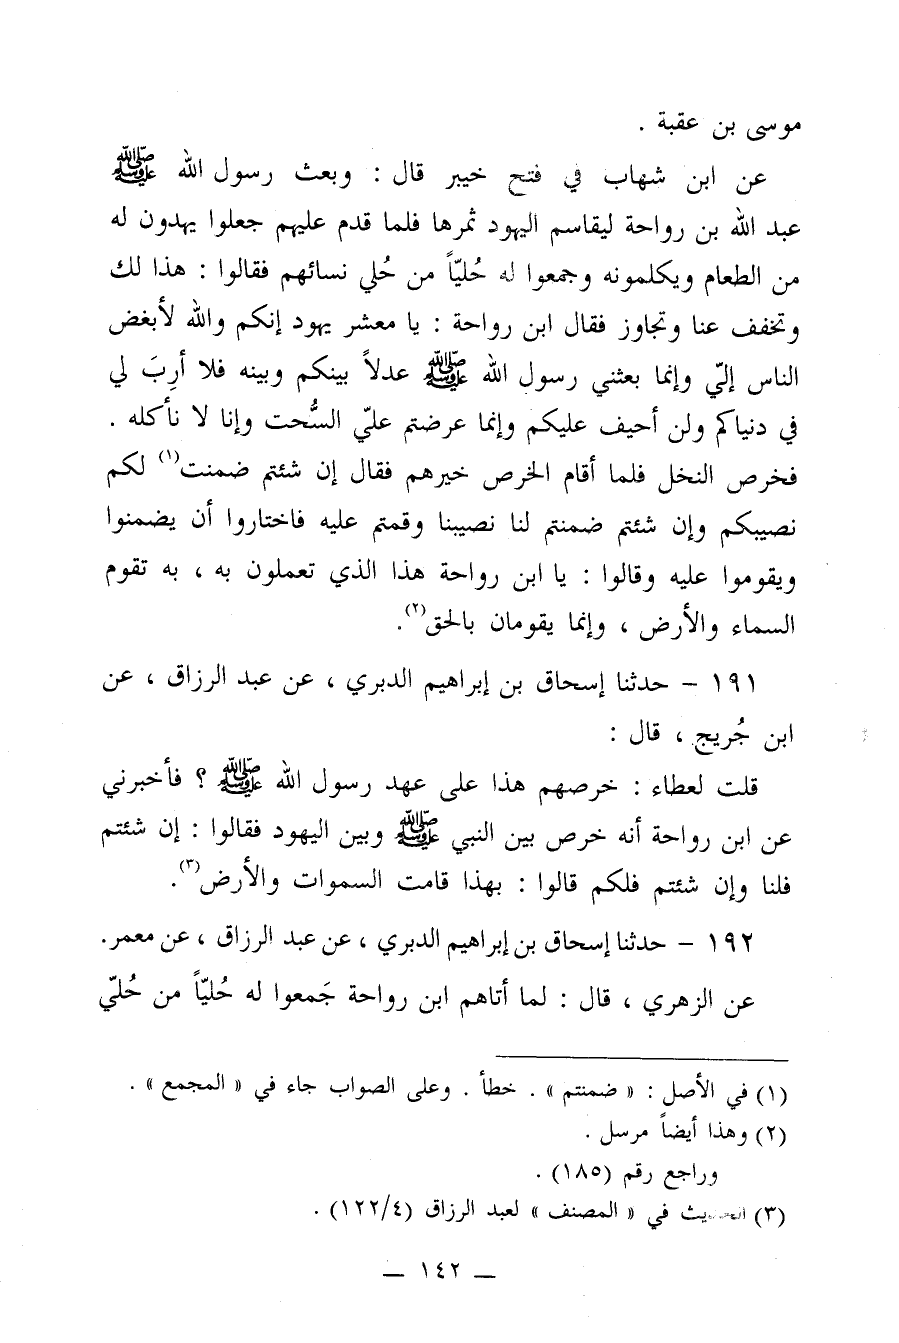 موسى بن عقبة .
عن ابن شهاب في فتح خيبر قال : وبعث رسول الله ﷺ
عبد الله بن رواحة ليقاسم اليهود ثمرها فلما قدم عليهم جعلوا يهدون له
من الطعام ويكلمونه وجمعوا له حُليّاً من حُلي نسائهم فقالوا : هذا لك
وتخفف عنا وتجاوز فقال ابن رواحة : يا معشر يهود إنكم والله لأبغض
الناس إليّ وإنما بعثني رسول الله ﷺ عدلاً بينكم وبينه فلا أربَ لي
في دنياكم ولن أحيف عليكم وإنما عرضتم عليّ السُّحت وإنا لا نأكله .
فخرص النخل فلما أقام الخرص خيرهم فقال إن شئتم ضمنت(١) لكم
نصيبكم وإن شئتم ضمنتم لنا نصيبنا وقمتم عليه فاختاروا أن يضمنوا
ويقوموا عليه وقالوا : يا ابن رواحة هذا الذي تعملون به ، به تقوم
السماء والأرض ، وإنما يقومان بالحق(٢).
١٩١ – حدثنا إسحاق بن إبراهيم الدبري ، عن عبد الرزاق ، عن
ابن جُريج ، قال :
قلت لعطاء : خرصهم هذا على عهد رسول الله ﷺ ؟ فأخبرني
عن ابن رواحة أنه خرص بين النبي ﷺ وبين اليهود فقالوا : إن شئتم
فلنا وإن شئتم فلكم قالوا : بهذا قامت السموات والأرض(٣).
١٩٢ – حدثنا إسحاق بن إبراهيم الدبري ، عن عبد الرزاق ، عن معمر.
عن الزهري ، قال : لما أتاهم ابن رواحة جَمعوا له حُليّاً من حُليّ
(١) في الأصل : « ضمنتم » . خطأ . وعلى الصواب جاء في « المجمع » .
(٢) وهذا أيضاً مرسل .
وراجع رقم (١٨٥) .
(٣) الحديث في « المصنف » لعبد الرزاق (١٢٢/٤) .
— ١٤٢ —